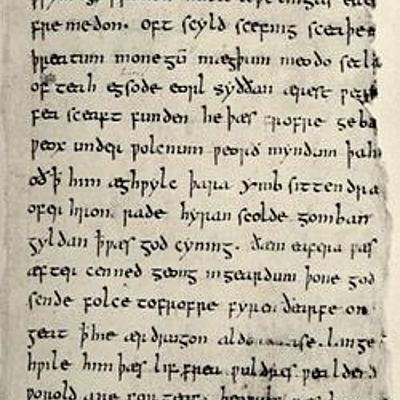 fremedon. oft scyld scefing sceaþen
þreatum monegū mægþum meodo setla
of teah egsode eorl syððan ærest ƿear
fea sceaft funden he þæs frofre geba
ƿeox under ƿolcnum ƿeorð myndum þah
oð ꝥ him æghƿylc þara ymb sittendra
ofer hron rade hyran scolde gomban
gyldan ꝥ ƿæs god cyning. ðæm eafera ƿæs
æfter cenned geong in geardum þone god
sende folce tofrofre fyren ðearfe on
geat ꝥ hie ær drugon aldor ase. lange
hƿile him þæs liffrea ƿuldres ƿealdend
ƿorold are for geaf.